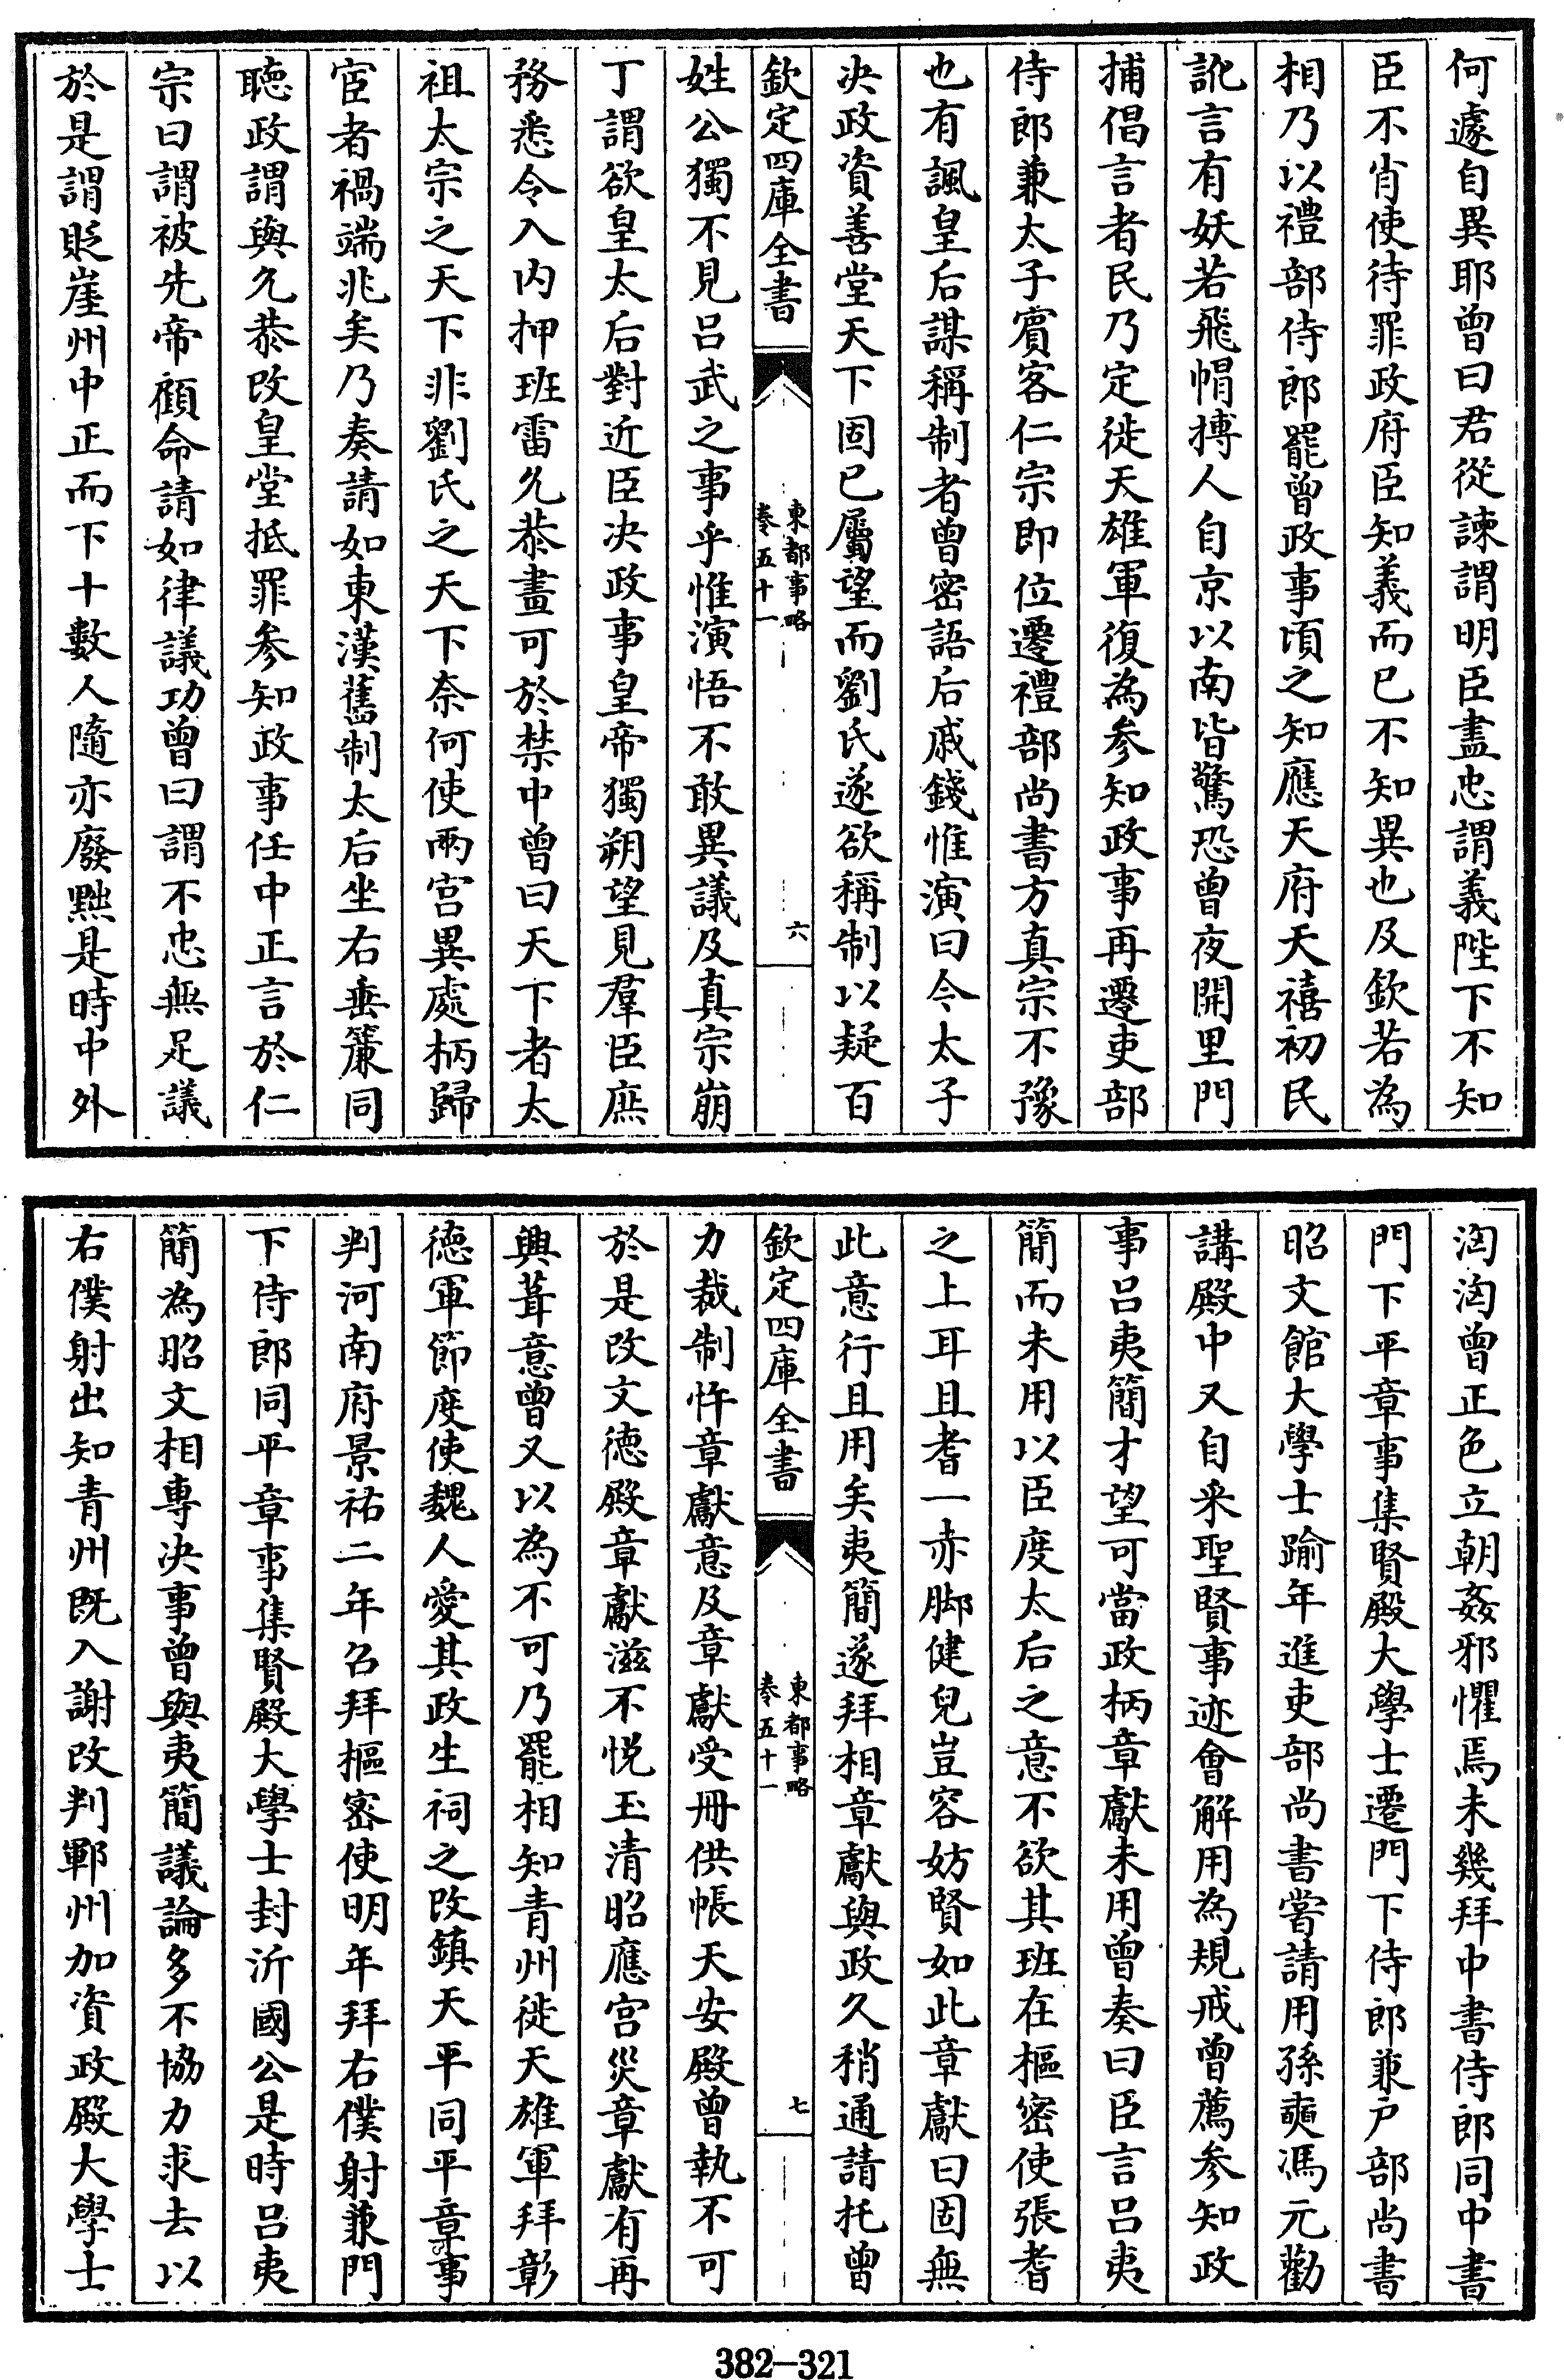 何遽自異耶曾曰君從諫謂明臣盡忠謂義陛下不知
臣不肖使待罪政府臣知義而已不知異也及欽若為
相乃以禮部侍郎罷曾政事頃之知應天府天禧初民
訛言有妖若飛帽搏人自京以南皆驚恐曾夜開里門
捕倡言者民乃定徙天雄軍復為參知政事再遷吏部
侍郎兼太子賓客仁宗即位遷禮部尚書方真宗不豫
也有諷皇后謀稱制者曾密語后戚錢惟演曰今太子
決政資善堂天下固已屬望而劉氏遂欲稱制以疑百
欽定四庫全書
東都事略
卷五十一
六
姓公獨不見呂武之事乎惟演悟不敢異議及真宗崩
丁謂欲皇太后對近臣決政事皇帝獨朔望見羣臣庶
務悉令入内押班雷允恭畫可於禁中曾曰天下者太
祖太宗之天下非劉氏之天下奈何使兩宮異處柄歸
宦者禍端兆矣乃奏請如東漢舊制太后坐右垂簾同
聽政謂與允恭改皇堂抵罪參知政事任中正言於仁
宗曰謂被先帝顧命請如律議功曾曰謂不忠無足議
於是謂貶崖州中正而下十數人隨亦廢黜是時中外
洶洶曾正色立朝姦邪懼焉未幾拜中書侍郎同中書
門下平章事集賢殿大學士遷門下侍郎兼戶部尚書
昭文館大學士踰年進吏部尚書嘗請用孫奭馮元勸
講殿中又自采聖賢事迹會解用為規戒曾薦參知政
事呂夷簡才望可當政柄章獻未用曾奏曰臣言呂夷
簡而未用以臣度太后之意不欲其班在樞密使張耆
之上耳且耆一赤脚健兒豈容妨賢如此章獻曰固無
此意行且用矣夷簡遂拜相章獻與政久稍通請托曾
欽定四庫全書
東都事略
卷五十一
七
力裁制忤章獻意及章獻受冊供帳天安殿曾執不可
於是改文德殿章獻滋不悅玉清昭應宮災章獻有再
興葺意曾又以為不可乃罷相知青州徙天雄軍拜彰
德軍節度使魏人愛其政生祠之改鎮天平同平章事
判河南府景祐二年召拜樞密使明年拜右僕射兼門
下侍郎同平章事集賢殿大學士封沂國公是時呂夷
簡為昭文相專決事曾與夷簡議論多不協力求去以
右僕射出知青州既入謝改判鄆州加資政殿大學士
382-321